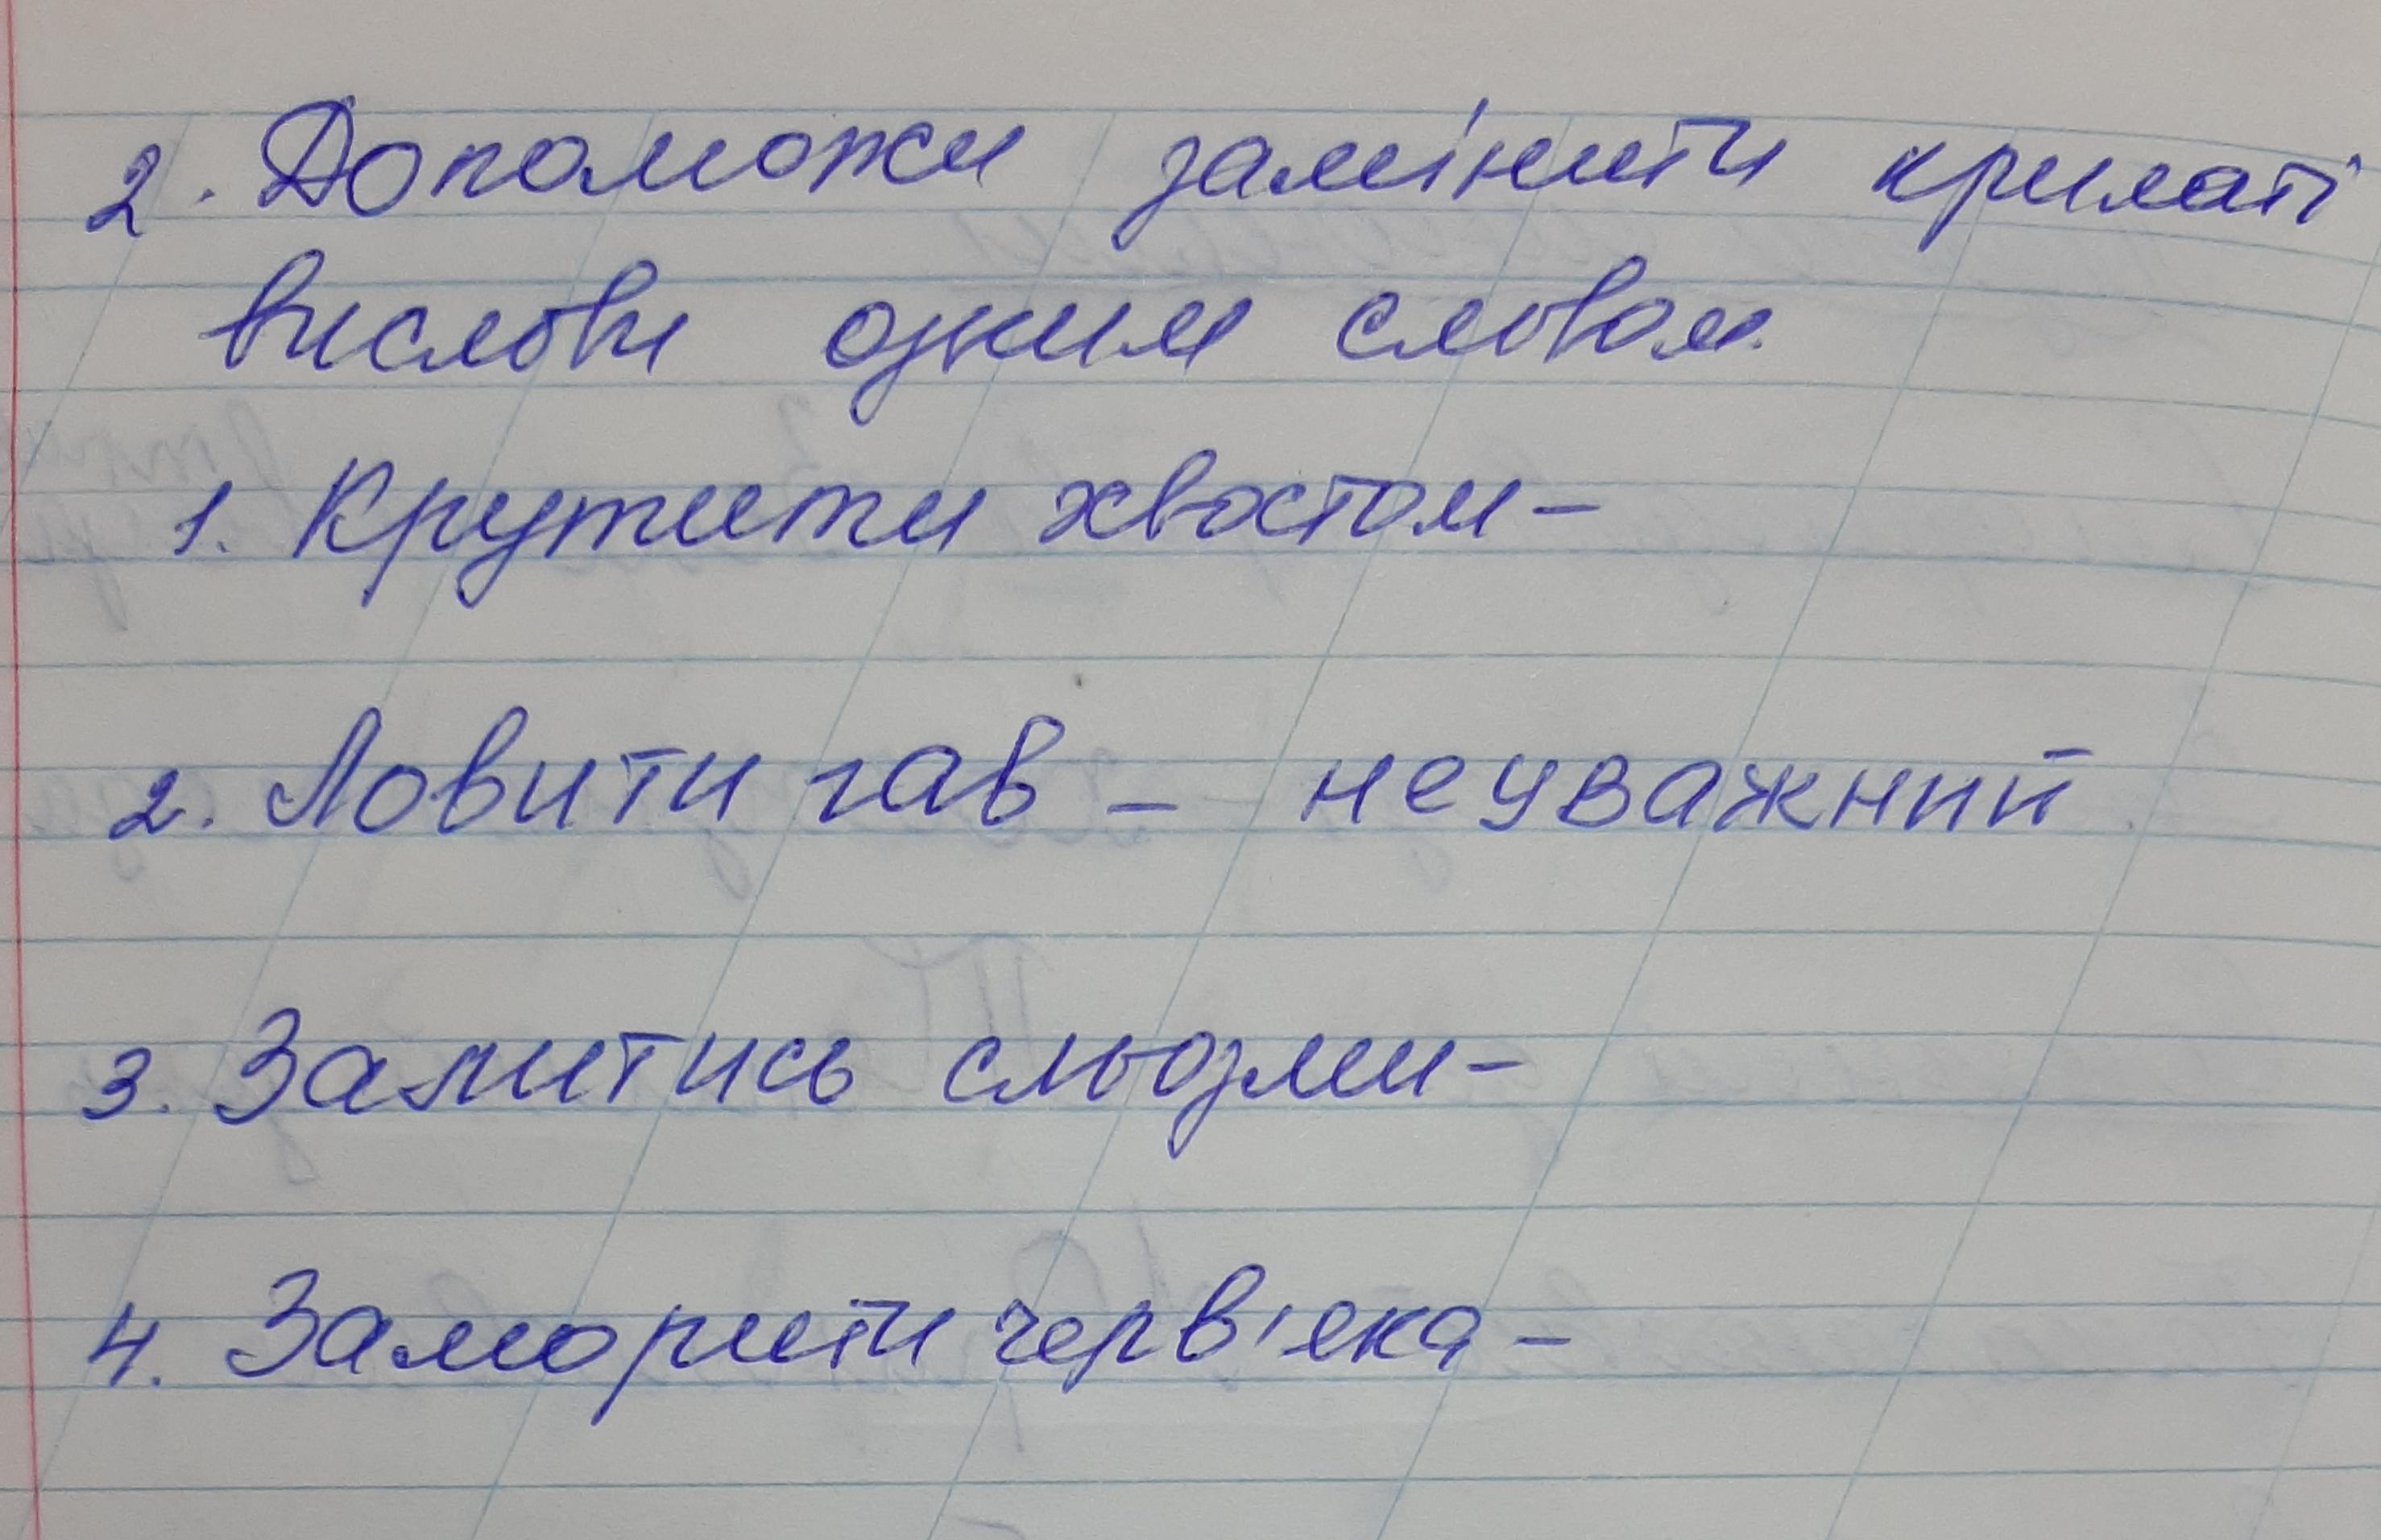 2. Допоможи замінити крилаті
вислови одним словом.
1. Крутити хвостом –
2. Ловити гав – неуважний
3. Залитись сльозми –
4. Заморити черв'яка –